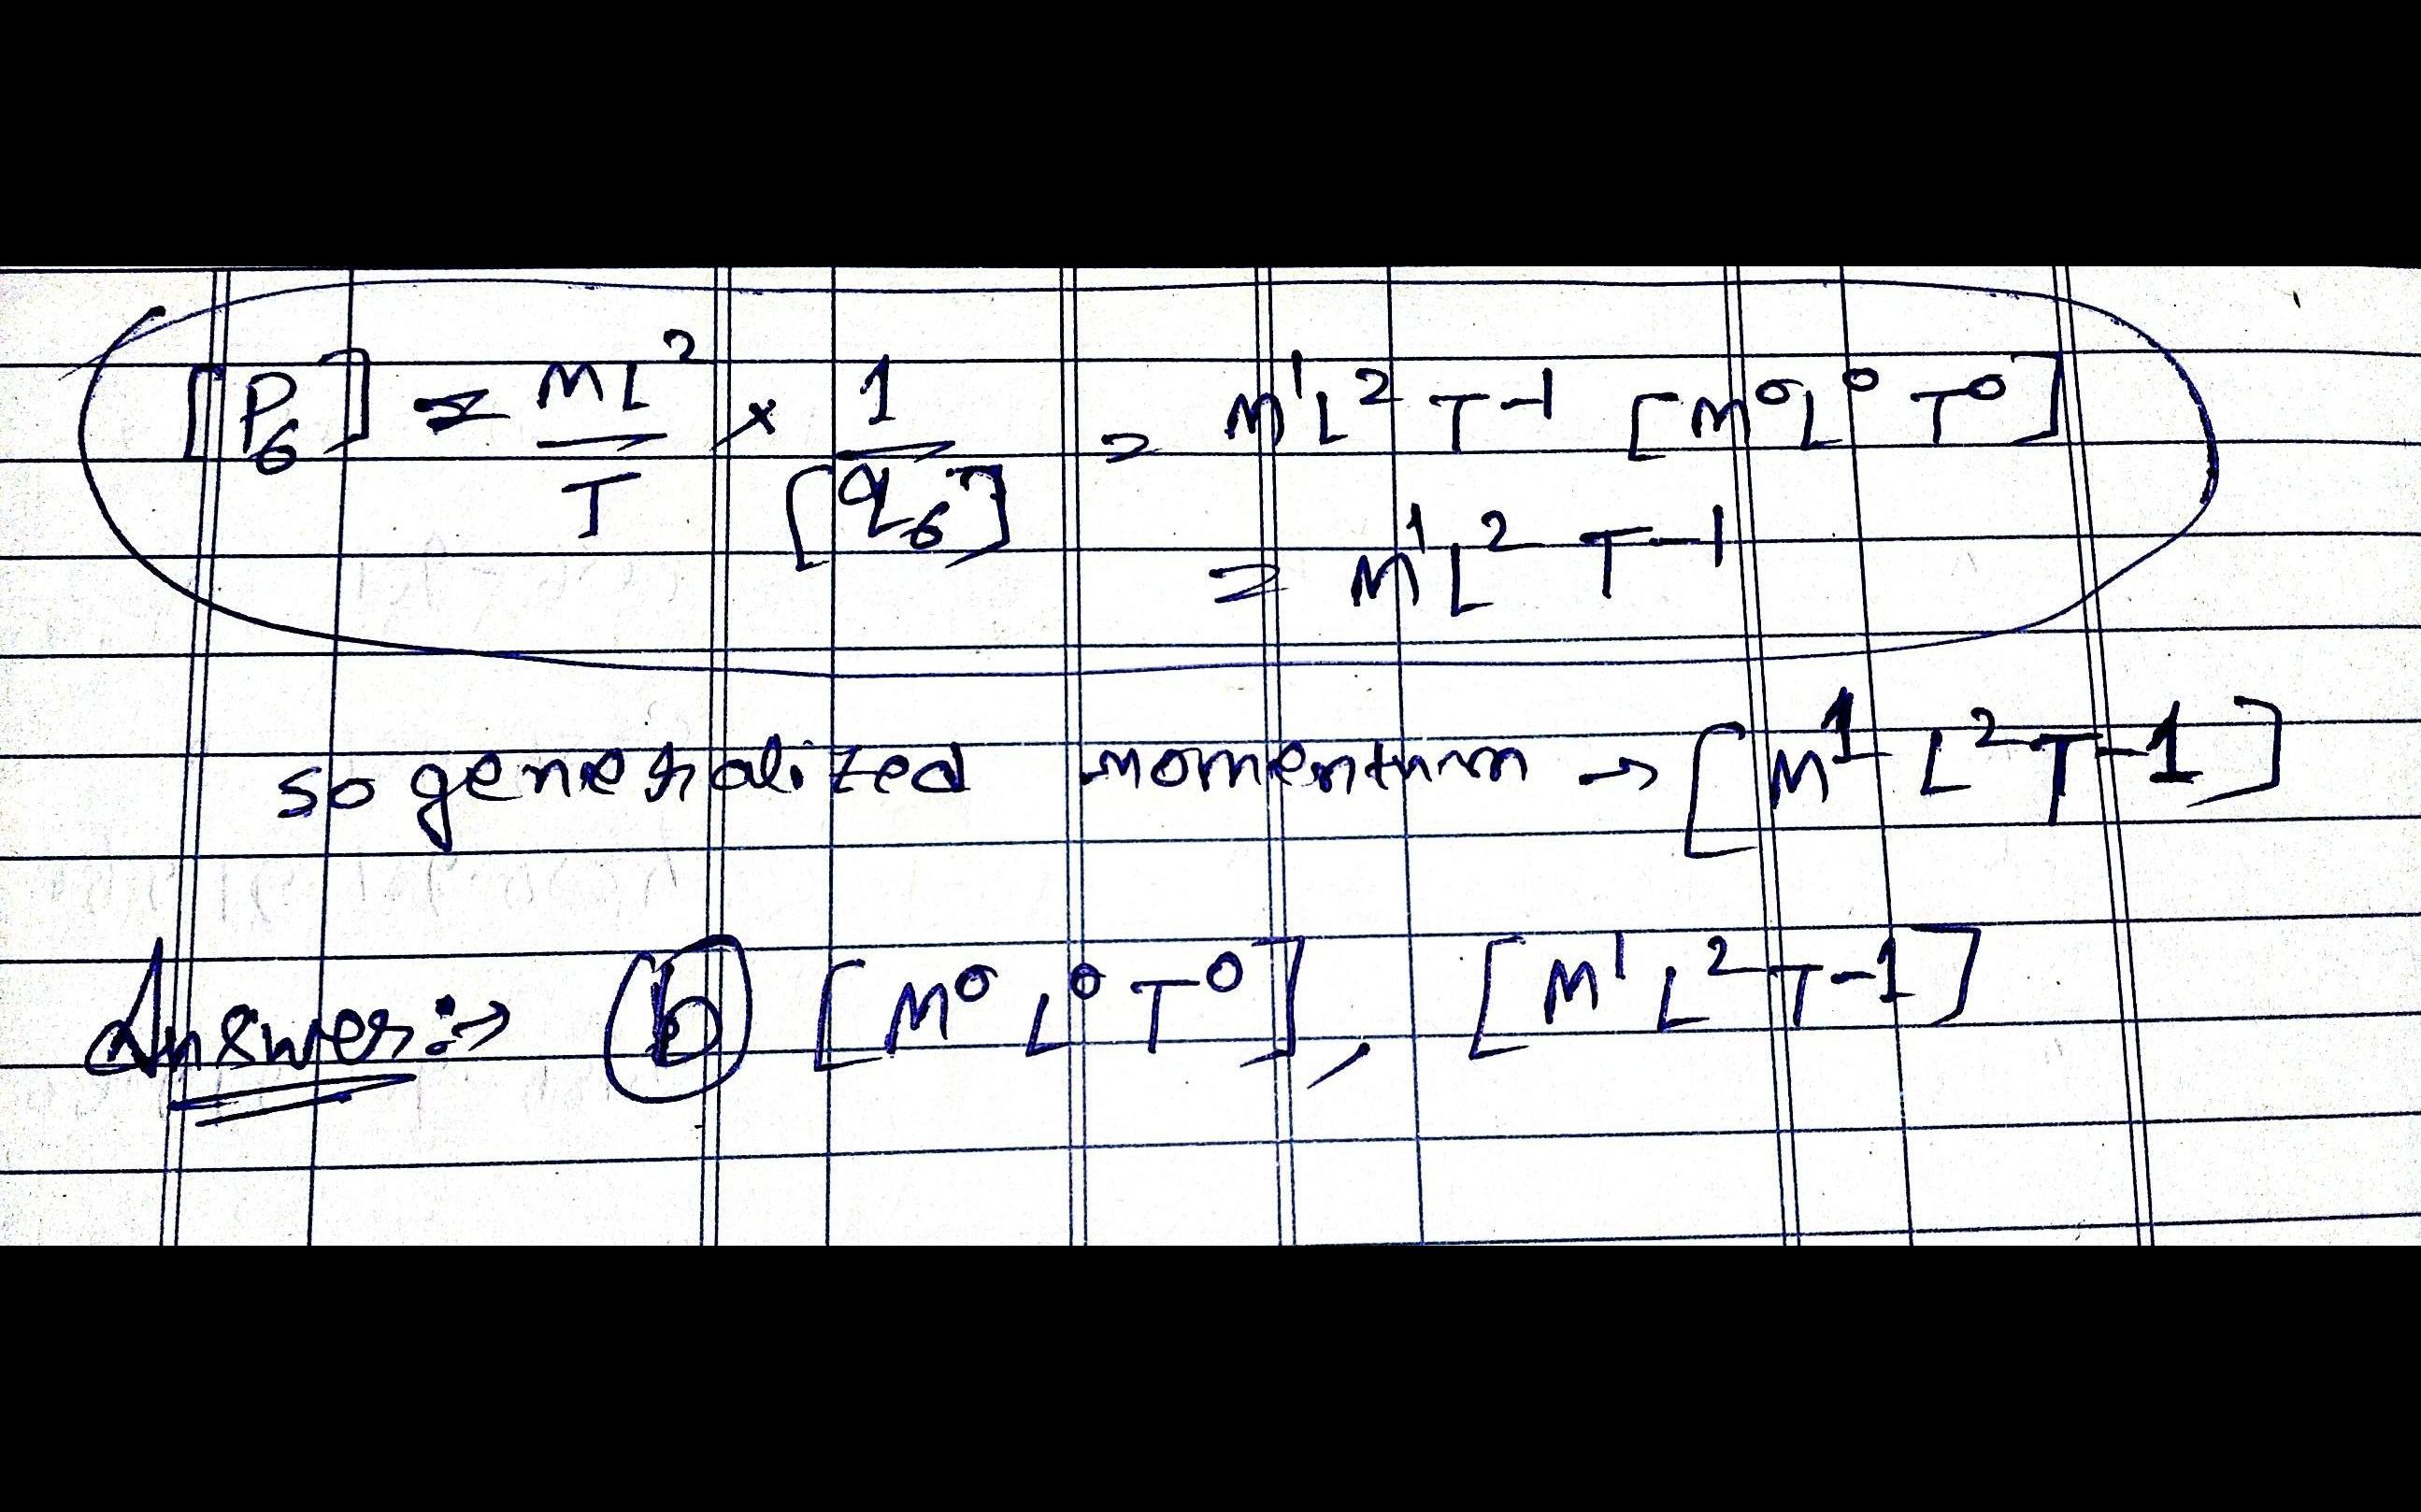 [P₆] = ML²/T × 1/[q₆] = M¹L²T⁻¹ [M⁰L⁰T⁰]
= M¹L²T⁻¹
so generalized momentum → [M¹L²T⁻¹]
Answer :→ (b) [M⁰L⁰T⁰], [M¹L²T⁻¹]